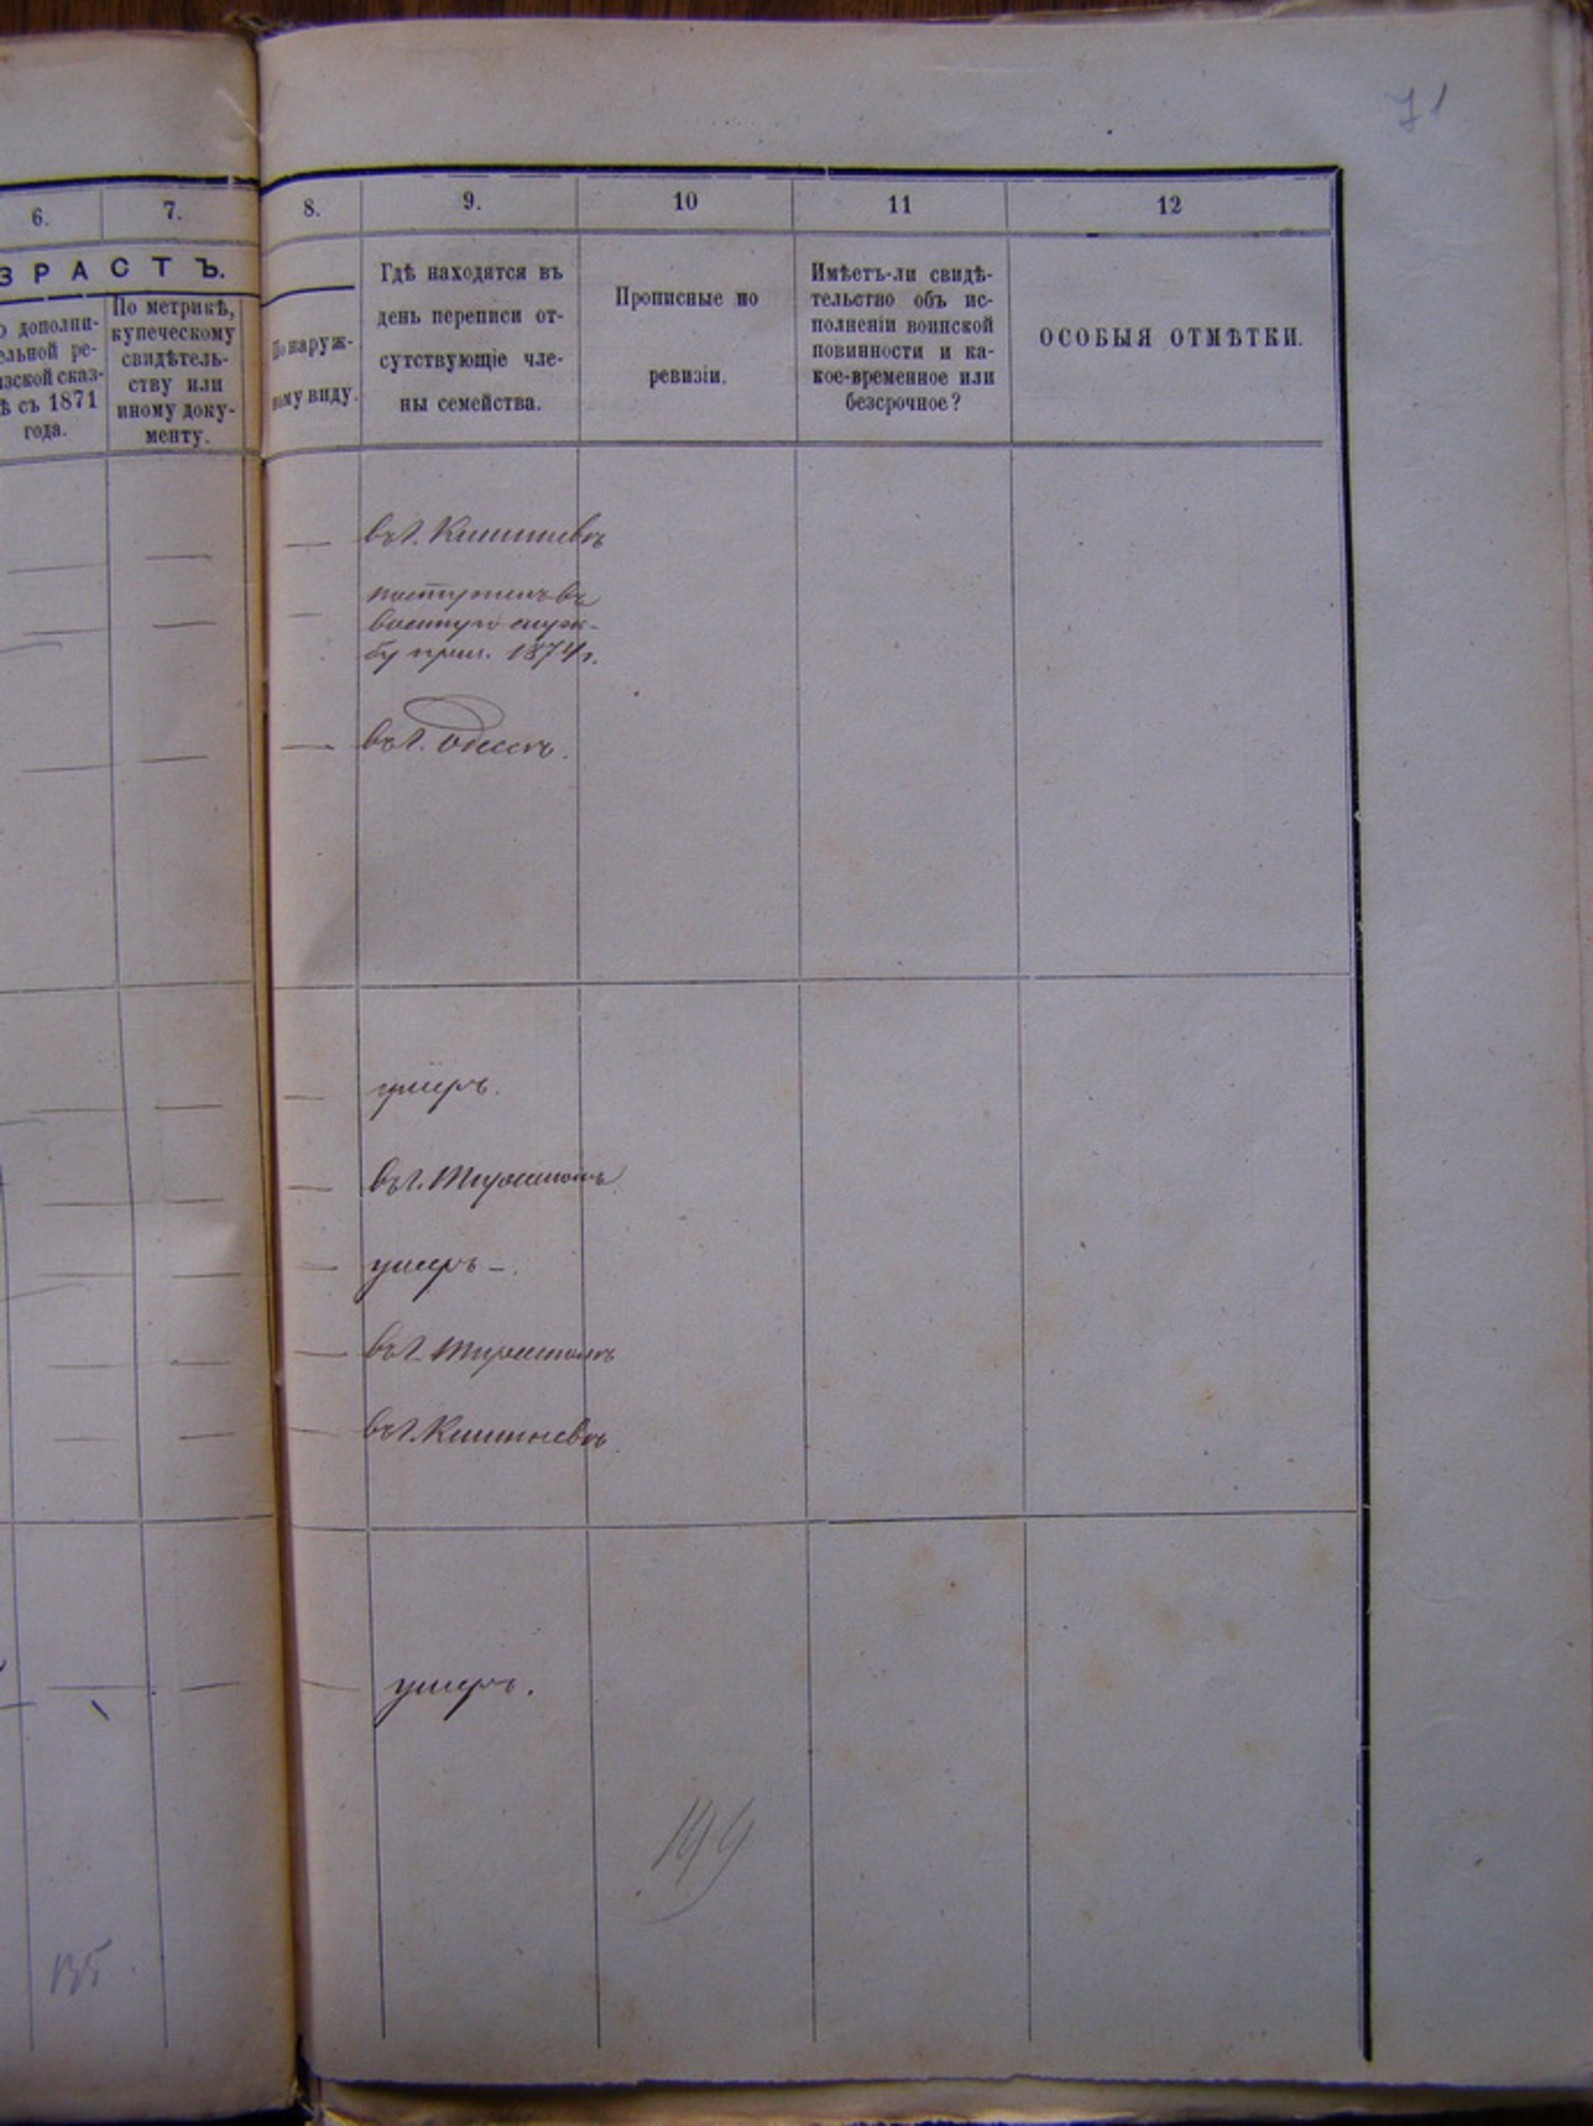 71
6. 7. 8. 9. 10 11 12
ЗРАСТЪ.
о дополни-
ельной ре-
изской сказ-
ѣ съ 1871
года.
По метрикѣ,
купеческому
свидѣтель-
ству или
иному доку-
менту.
По наруж-
ному виду.
Гдѣ находятся въ
день переписи от-
сутствующіе чле-
ны семейства.
Прописные по
ревизіи.
Имѣетъ-ли свидѣ-
тельство объ ис-
полненіи воинской
повинности и ка-
кое-временное или
безсрочное?
ОСОБЫЯ ОТМѢТКИ.
въ г. Кишиневѣ
поступилъ въ
военную служ-
бу 1874 г.
въ г. Одессѣ.
умеръ.
въ г.
умеръ –.
въ г.
въ г. Кишиневѣ.
умеръ.
199
135